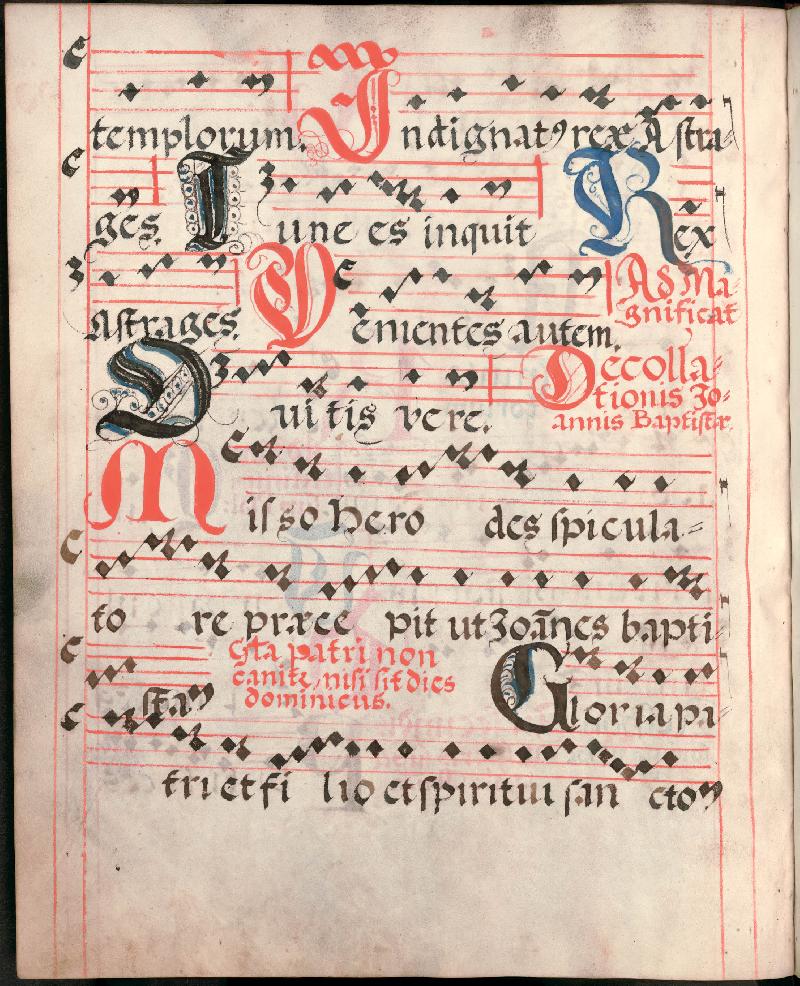 templorum. Indignatꝰ rex Astra-
ges. Tune es inquit Rex
Astrages. Venientes autem. Ad Ma-
gnificat
Quitis vere. Decolla-
tionis Jo-
annis Baptistæ.
Misso hero des spicula-
to re præce pit ut Joānes bapti-
sta Gla patri non
canitr, nisi sit dies
dominicus. Gloria pa-
tri et fi lio et spiritui san cto